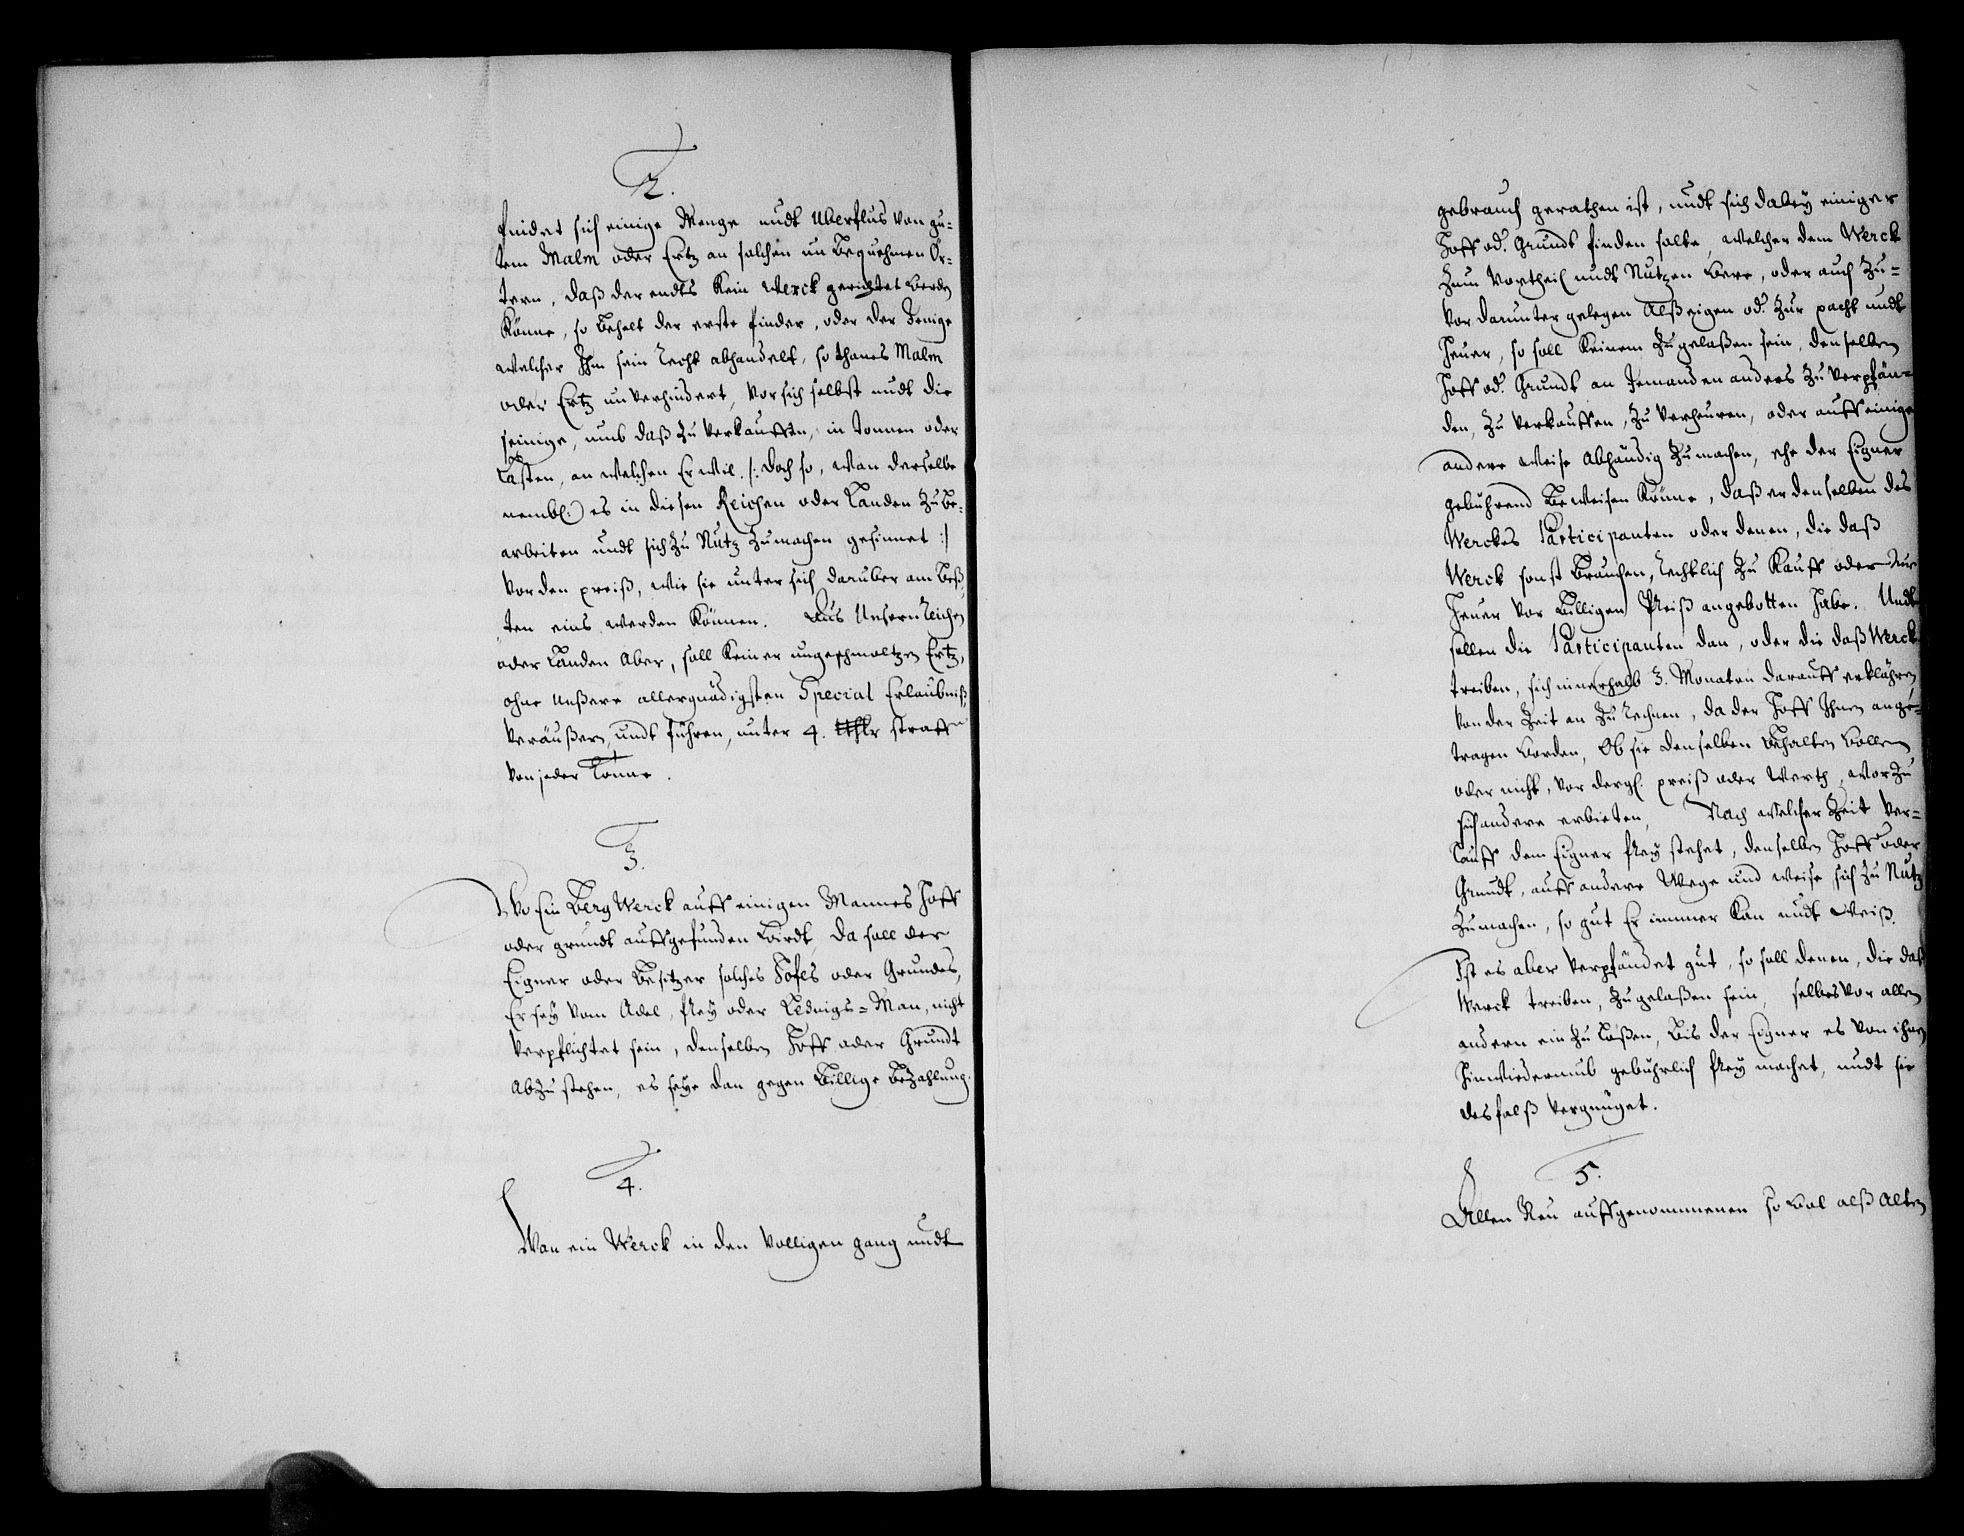 2.
findet sich einige Menge undt Uberflus von gu-
tem Malm oder Ertz an solchen un bequehmen Ör-
tern, daß der endts kein Werck gerichtet werden
könne, so behelt der erste finder, oder der Jenige
welcher Ihm sein recht abhandelt, so thanes Malm
oder Ertz un verhindert, vor sich selbst undt die
seinige, umb daß zu verkauffen, in tonnen oder
Lasten, an welchen Er wil. /: doch so, wan derselbe
nembl:) es in diesen Reichen oder Landen zu be-
arbeiten undt sich zu Nutz zumachen gesinnet :/
vor den preiß, wie sie unter sich daruber am beß-
ten eins werden können. Aus Unsern reichen
oder Landen Aber, soll keiner ungeschmoltzen Ertz,
ohne unßere allergnädigsten Special Erlaubniß,
veräußern, undt führen, unter 4. straff
von jeder Tonne.
3.
Wo Ein Berg Werck auff einigen Mannes Hoff
oder grundt auffgefunden wirdt, da soll der
Eigner oder Besitzer solches Hofes oder Grundes,
Er sey vom Adel, frey oder Königs-Man, nicht
verpflichtet sein, denselben Hoff oder Grundt
Abzustehen, es seye dan gegen billige bezahlung.
4.
Wan ein Werck in den volligen gang undt
gebrauch gerathen ist, undt sich dabey einiger
Hoff od. Grundt finden solte, welcher dem Werck
zum Vortheil undt Nutzen were, oder auch zu-
vor darunter gelegen Alß eigen od. zur pacht undt
heuer, so soll keinem zugelaßen sein, denselben
Hoff od. Grundt an Jemanden anders zu verpfän-
den, zu verkauffen, zu verheuren, oder auff einige
andere weise Abhändig zumachen, ehe der Eigner
gebuhrend beweisen könne, daß er denselben des
Werckes Participanten oder denen, die daß
Werck sonst brauchen, rechtlich zu kauff oder zur
heuer vor billigen Preiß angebotten habe. Undt
sollen die Participanten dan, oder die daß Werck
treiben, sich innerhalb 3. Monaten darauff erklähren
von der Zeit an zu rechnen, da der Hoff Ihnen ange-
tragen worden, Ob sie denselben behalten wollen
oder nicht, vor dergl. preiß oder werth, worzu
sich andere erbieten, Nach welcher Zeit ver-
lauff dem Eigner frey stehet, denselben Hoff oder
Grundt, auff andere Wege und weise sich zu Nutz
zumachen, so gut Er immer kan undt weiß.
Ist es aber verpfändet gut, so soll denen, die daß
Werck treiben, zugelaßen sein, selbes vor allen
andern ein zu lößen, bis der Eigner es von ihnen
hinwiederumb gebuhrlich frey machet, undt sie
desfalß vergnüget.
5.
Allen Neu auffgenommenen so wol alß Alten